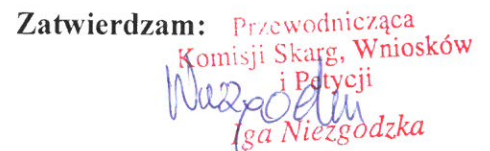 Zatwierdzam: Przewodnicząca
Komisji Skarg, Wniosków
i Petycji
Iga Niezgódzka